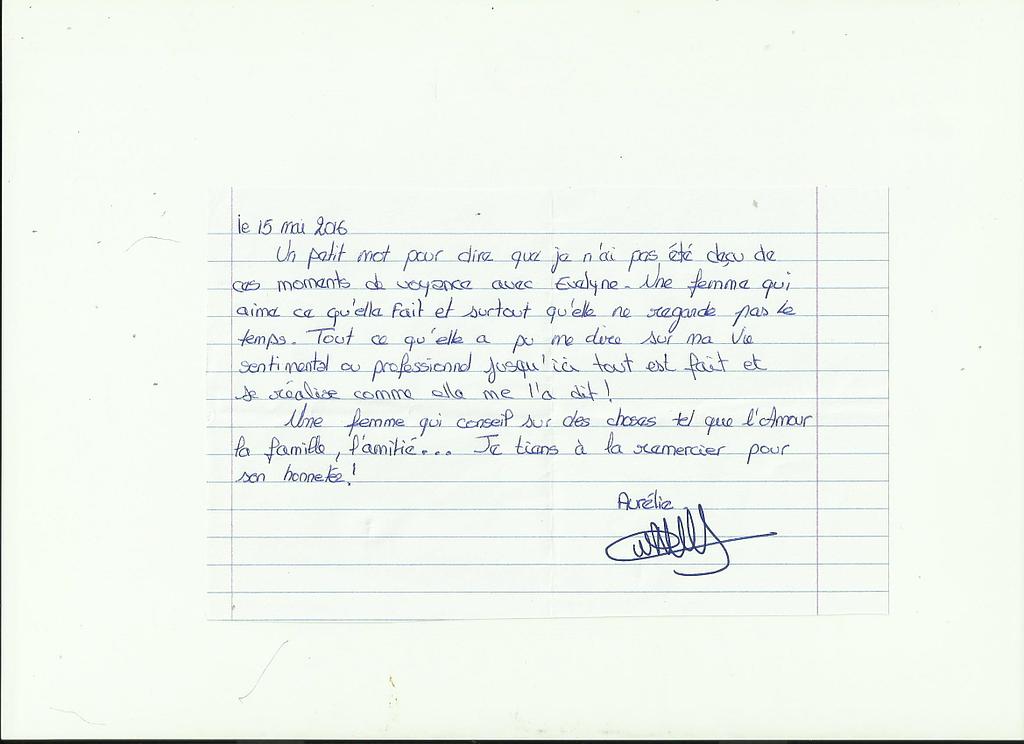 le 15 mai 2016
Un petit mot pour dire que je n'ai pas été deçu de
ces moments de voyance avec Evelyne. Une femme qui
aime ce qu'elle fait et surtout qu'elle ne regarde pas le
temps. Tout ce qu'elle a pu me dire sur ma vie
sentimental ou professionnel jusqu'ici tout est fait et
se réalise comme elle me l'a dit !
Une femme qui conseil sur des choses tel que l'Amour
la famille, l'amitié... Je tiens à la remercier pour
son honneteé !
Aurélie